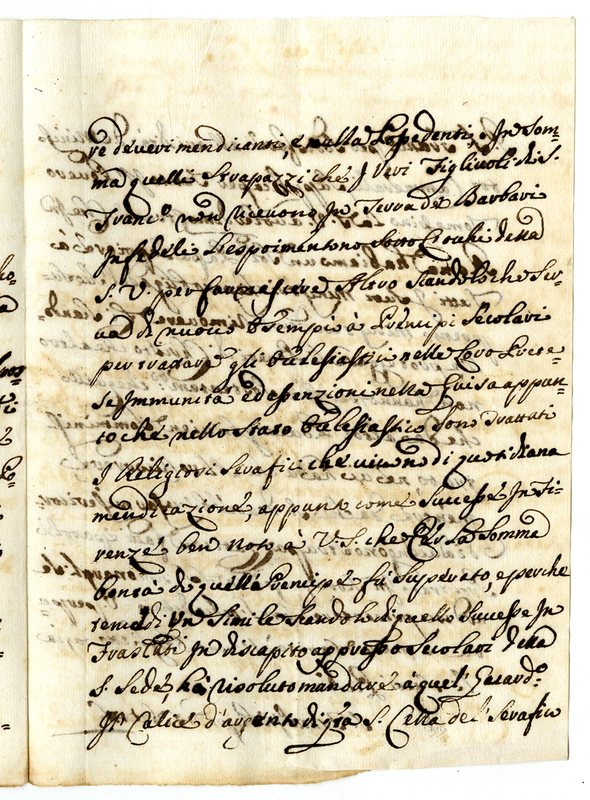 re de veri mendicanti, e nulla Possedenti, In Som=
ma quelli Strapazzi che I Veri Figlivoli di S.
Franc.º non ricevono In Terra de Barbari
Infedeli l'esporimentono sotto Occhi della
S. V. per far nascere Altro Scandolo che Ser=
va di nuovo Esempio à Prencipi Secolari
per trattare gli Ecclesiastici nelle Loro Prete=
se Immunità ed essenzioni nella Guisa appun=
to che nello Stato Ecclesiastico Sono Trattati
I Religiosi Serafici che vivono di quotidiana
mendicazione, appunto come Successe In Fi=
renze ben noto à V. S. che Per La Somma
bontà di quelle Prencipe fù Superato, e perche
remedi Un Simile Scandolo di quello Successe In
Frascati In discapito appresso Secolari della
S. Sede, hà risoluto mandare a quel Guard.º
Calice d'argento di S. Cella del Serafico